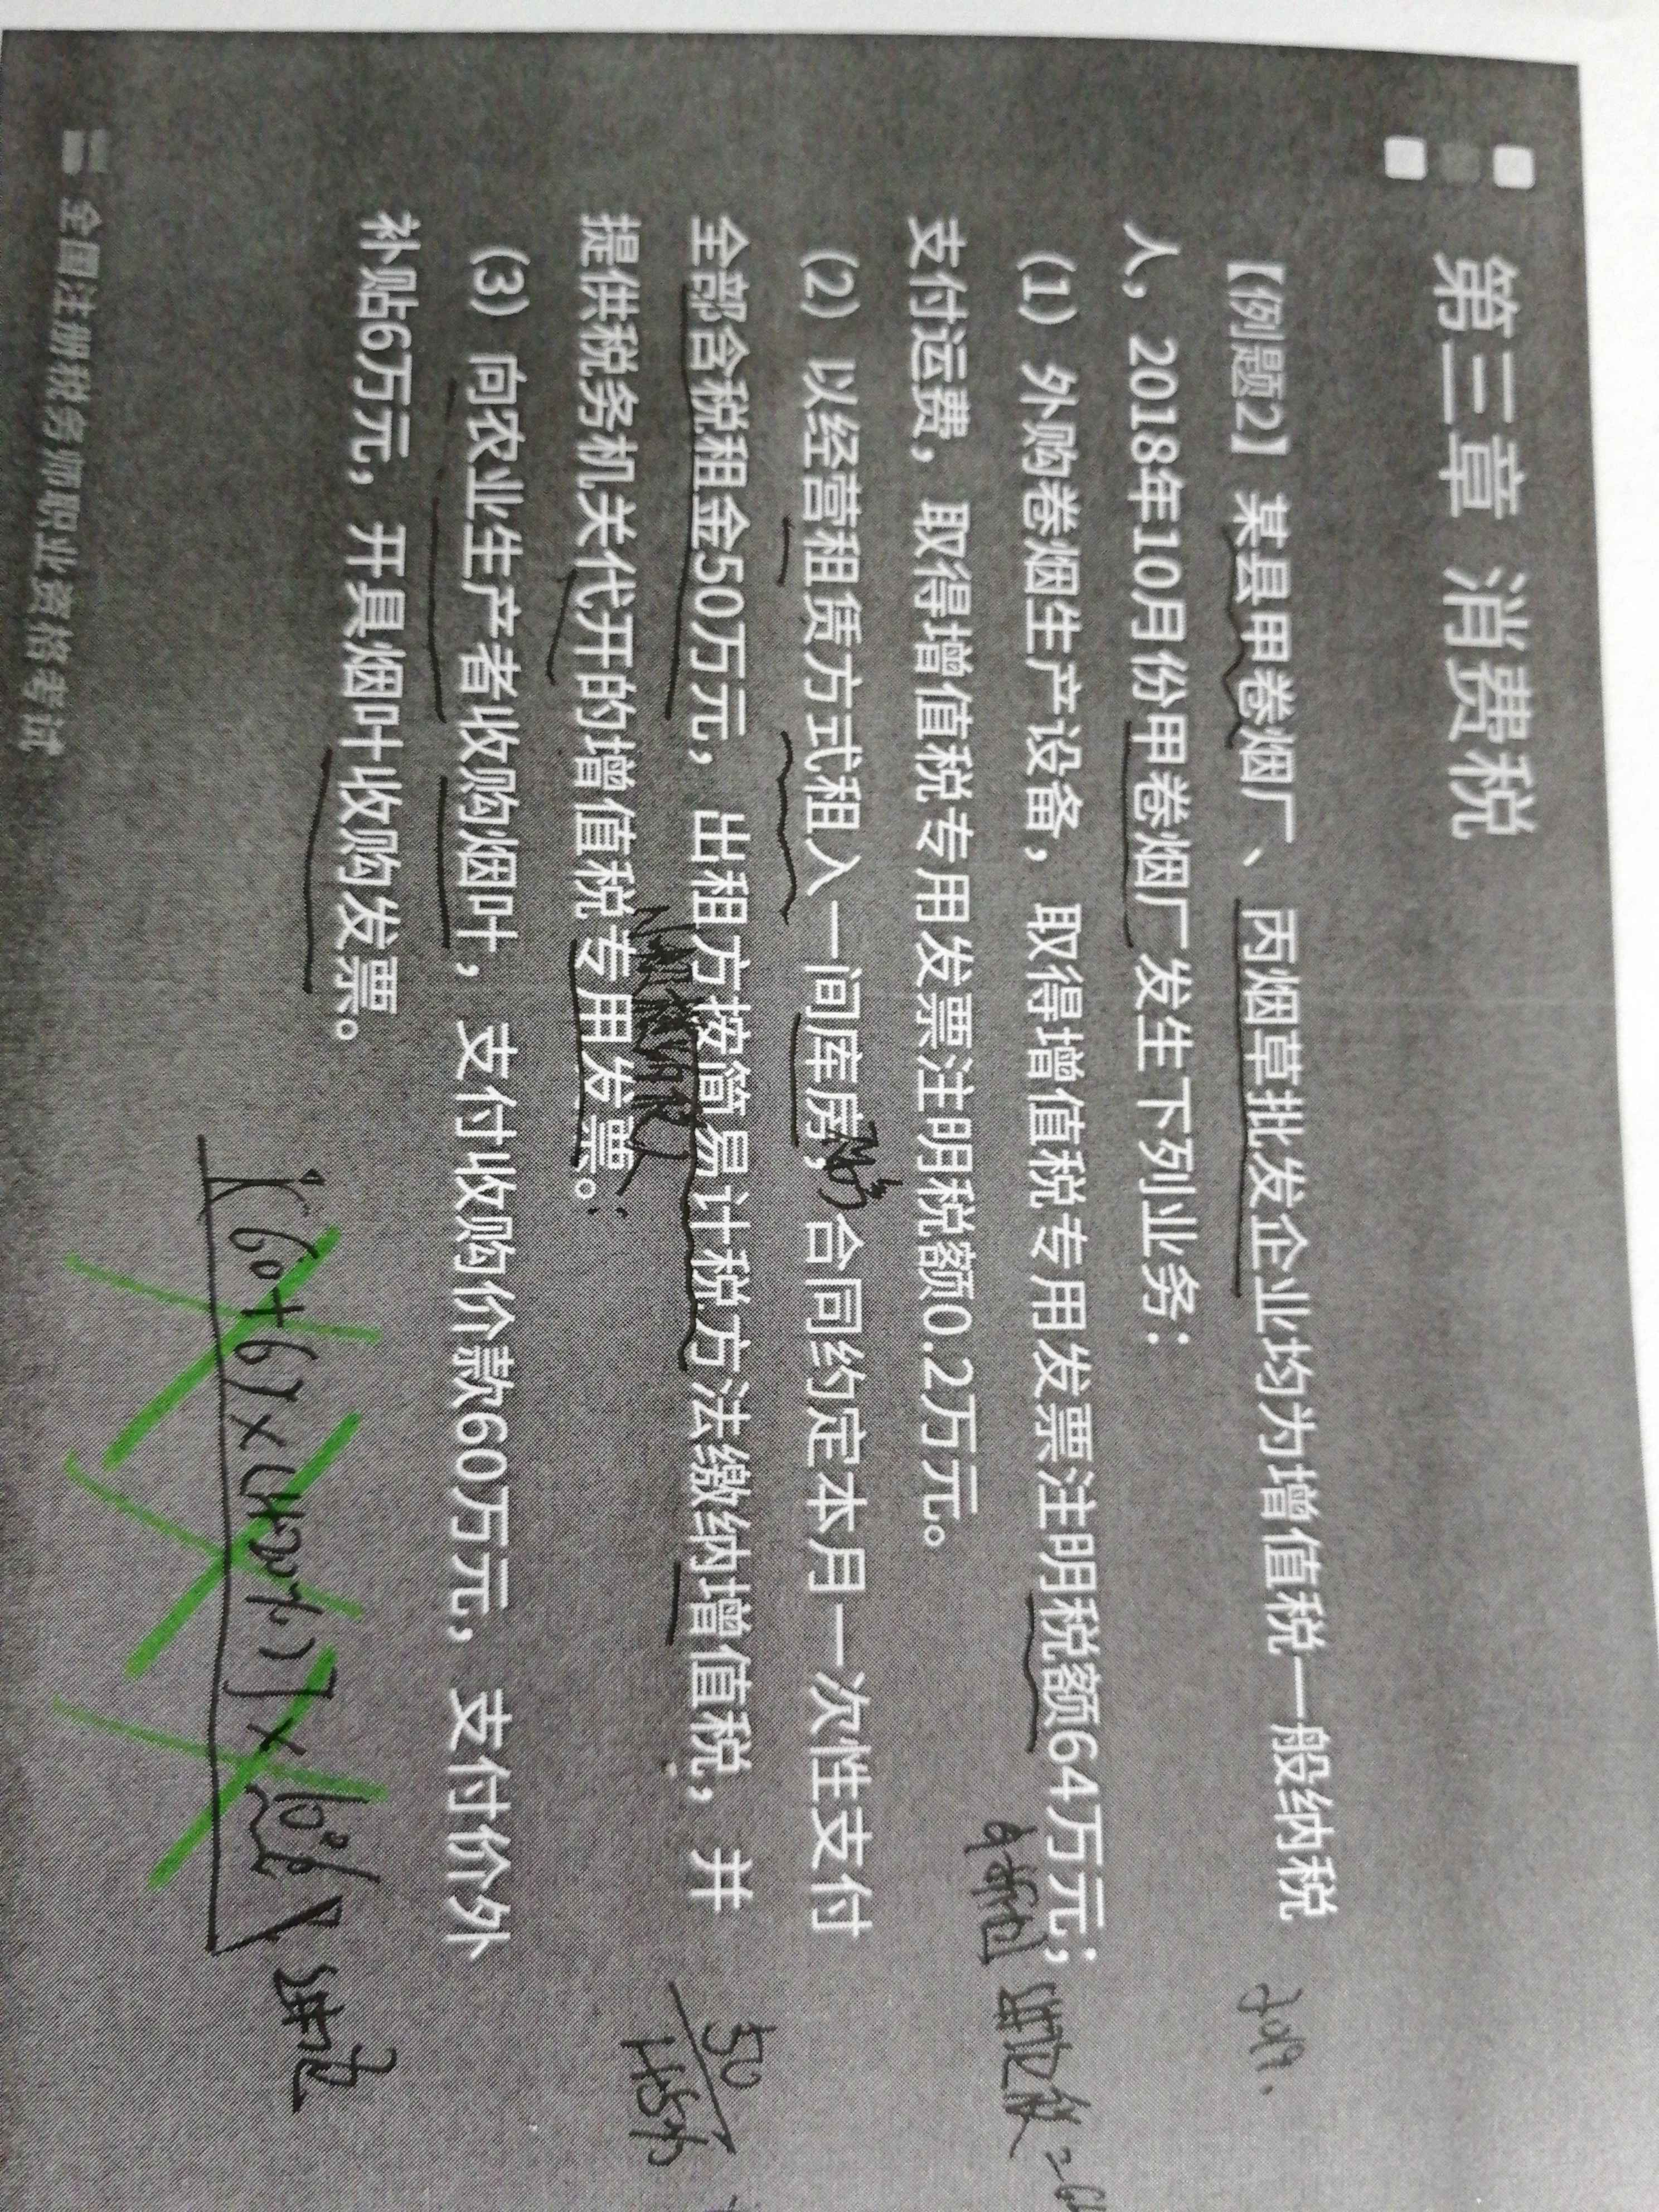 第三章 消费税
【例题2】某县甲卷烟厂、丙烟草批发企业均为增值税一般纳税
人，2018年10月份甲卷烟厂发生下列业务：
2019.
（1）外购卷烟生产设备，取得增值税专用发票注明税额64万元；
支付运费，取得增值税专用发票注明税额0.2万元。
（2）以经营租赁方式租入一间库房，合同约定本月一次性支付
全部含税租金50万元，出租方按简易计税方法缴纳增值税，并
50
1+5%
提供税务机关代开的增值税专用发票。
（3）向农业生产者收购烟叶，支付收购价款60万元，支付价外
补贴6万元，开具烟叶收购发票。
[(60+6)×(1+20%)]×10%
全国注册税务师职业资格考试